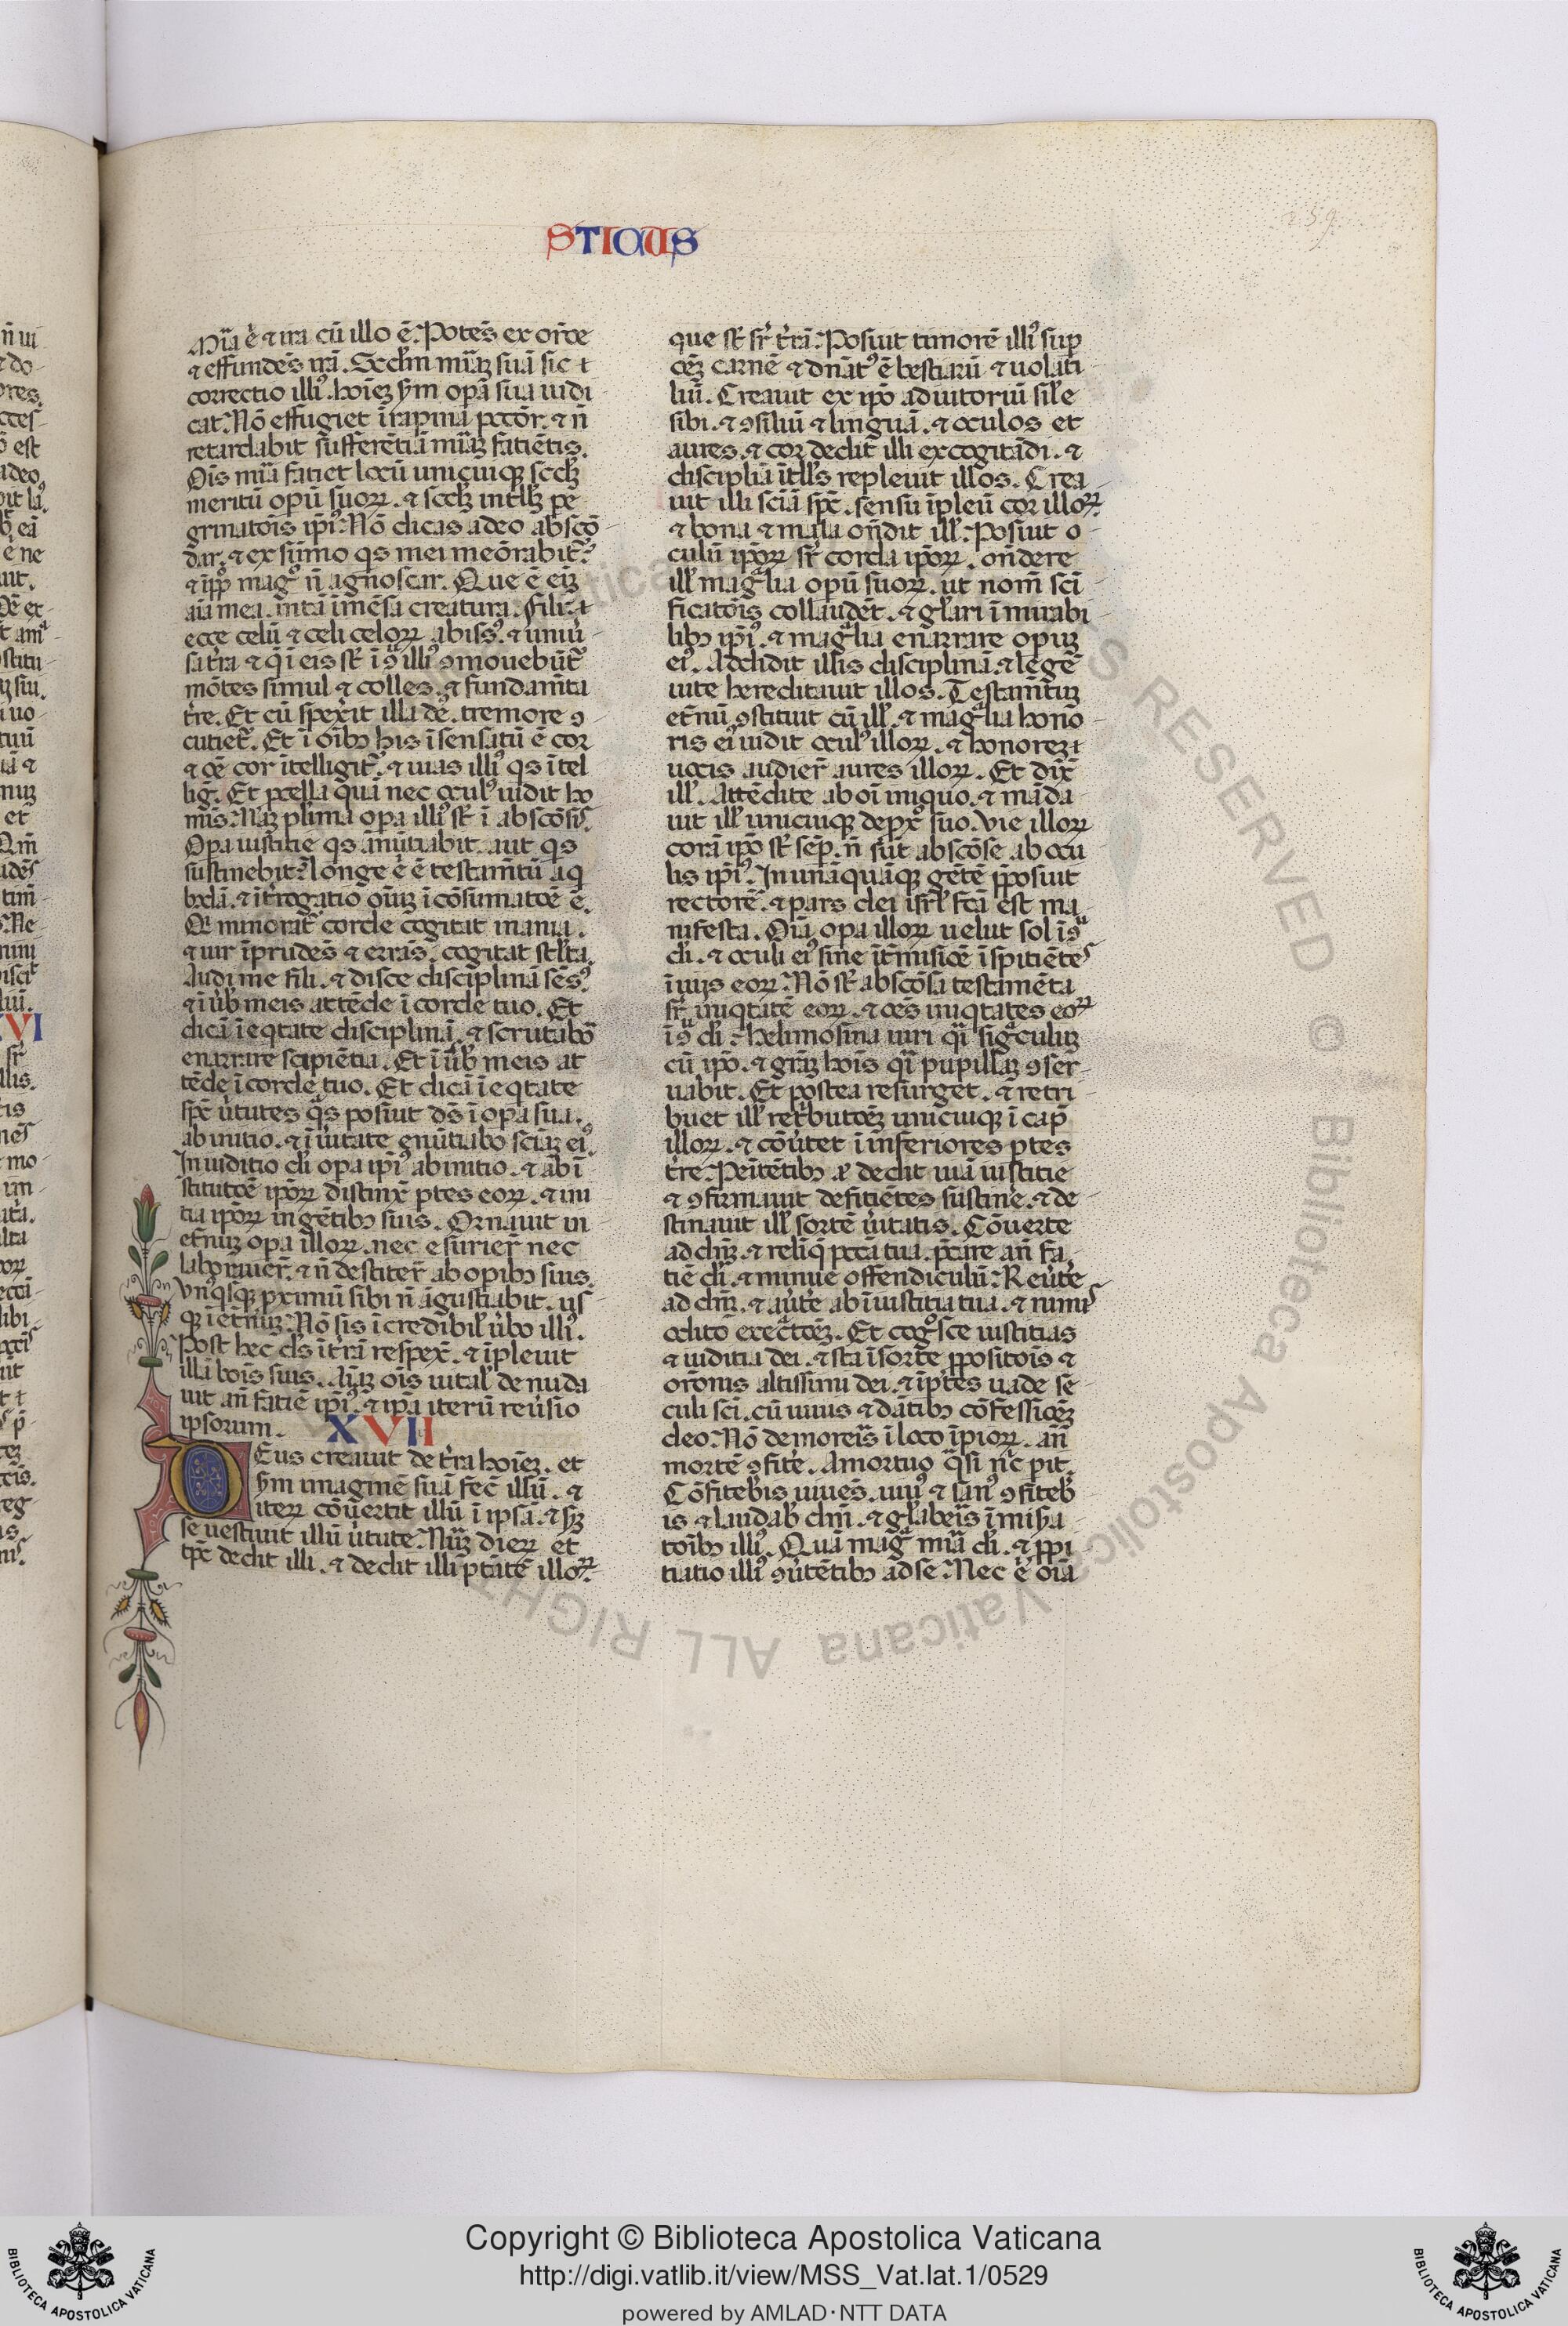 STICUS
259
Mia ē & ira cū illo ē. Potēs ex orōe
& effundēs irā. Scdm miaʒ suā sic &
correctio illiꝰ. hoīeʒ scm opa sua iudi
cat. Nō effugiet ī rapina pctōr. & ñ
retardabit sufferētiā miaʒ fatiētis.
Oīs mia fatiet locū unicuiqꝫ scdʒ
meritū opū suoꝝ. & scdʒ intllʒ pe
grinatoīs ipiꝰ. Nō dicas a deo abscō
dar. & ex sūmo qs mei meōrabit̃.
& ī ppło magͦ ñ agnoscar. Que ē eiʒ
aīa mea. ī nta īmēsa creatura. Fili &
ecce celū & celi celoꝝ abissꝰ. & uniu̾
sa t̾ra & q̄ ī eis st̄ ī 9ͣ illiꝰ ꝯmouebūt̃
mōtes simul & colles. & fundam̄ta
t̾re. Et cū spex̾it illa dē. tremore ꝯ
cutiet̃. Et ī oībꝰ his īsensatū ē cor
& oē cor ītelligit̃. & uias illiꝰ qs ītel
lig̃. Et pcella quā nec oculꝰ uidit ho
mīs. Naʒ plīma opa illiꝰ st̄ ī abscōsis.
Opa iustitie qs ānūtiabit. aut qs
sustinebit? Longe ē ē testam̄tū a q̄
bꝰdā. & īt̾rogatio oīuʒ ī cōsumatoē ē.
Qi minorat̃ corde cogitat inania.
& uir īprudēs & errās. cogitat stlta.
Audi me fili. & disce disciplinā sēsꝰ.
& ī u̾b meis attēde ī corde tuo. Et
dicā ī eqtate disciplinā. & scrutabō
enarrare scipiētia. Et ī u̾b meis at
tēde ī corde tuo. Et dicā ī eqtate
spc̄ u̾tutes qͣs posiut ds̄ ī opa sua.
ab initio. & ī u̾itate enūtiabo sciaʒ eiꝰ.
In iuditio di opa ipiꝰ ab initio. & ab ī
stitutōe ipoꝝ distinx̄ ptes eoꝝ. & ini
tia ipoꝝ in gētibꝰ suis. Ornauit in
et̾nuʒ opa illoꝝ. nec esurier̄ nec
laborauer̄. & ñ destiter̄ ab opibꝰ suis.
Vnꝰqsqꝫ pximū sibi ñ āgustiabit. us
qꝫ ī et̾nuʒ. Nō sis īcredibil̾ u̾bo illiꝰ.
Post hec ds̄ ī t̾rā respex̄. & īpleuit
illā bois suis. Aīaʒ oīs uitał denuda
uit añ fatiē ipiꝰ. & ipa iterū reu̾sio
ipsorum. XVII
DEus creauit de t̾ra hoīeʒ. et
scm imaginē suā fec̄ illū. &
iteꝝ cōuertit illū ī ipsā. & scʒ
se uestiuit illū u̾tute. Nūʒ dieꝝ et
tpc̄ dedit illi. & dedit illi ptātē illoꝝ.
que st̄ sr̄ t̾rā. Posiuit timorē illiꝰ sup
oēʒ carnē & dn̄atꝰ ē bestiarū & uolati
liū. Creauit ex ipo adiutoriū sile
sibi. & ꝯsiliū & linguā. & oculos et
aures. & cor dedit illi excogitādi. &
discipliā ītllꝰ repleuit illos. Crea
uit illi sciā spc̄. sensu īpleū cor illoꝝ.
& bona & mala on̄dit ill̾. Posiuit o
culū ipoꝝ sr̄ corda ipoꝝ. on̄dere
ill̾ magͣlia opū suoꝝ. ut nom̄ sci
ficatoīs collaudēt. & gl̾ari ī mirabi
libꝰ ipiꝰ. & magͣlia enarrare opuʒ
eiꝰ. Addidit illis disciplinā. & legē
uite hereditauit illos. Testam̄tuʒ
et̾nū ꝯstituit cū ill̾. & magͣlia hono
ris eiꝰ uidit oculꝰ illoꝝ. & honoreʒ &
uocis audier̄ aures illoꝝ. Et dix̄
ill̾. Attēdite ab oī iniquo. & māda
uit ill̾ unicuiqꝫ de pxͦ suo. Vie illoꝝ
corā ipo st̄ sēp. ñ sūt abscōse ab ocu
lis ipiꝰ. In unāquāqꝫ gētē pposiuit
rectorē. & pars dei isrl̾ fc̄a est ma
nifesta. Oīa opa illoꝝ uelut sol ī 9ͣ
di. & oculi eiꝰ sine īt̾misiōe īspitiētes
ī uiis eoꝝ. Nō st̄ abscōsa testamēta
sr̄ iniqtatē eoꝝ. & oēs iniqtates eoꝝ
ī 9ͣ di. Helimosina uiri qͣi sigͣculuʒ
cū ipo. & grāʒ hoīs qͣi pupillaʒ ꝯser
uabit. Et postea resurget. & retri
buet ill̾ ret̾butōeʒ unicuiqꝫ ī cap̄
illoꝝ. & cōu̾tet ī inferiores ptes
t̾re. Penitētibꝰ & dedit uiā iustitie
& ꝯfirmauit defitiētes sustine̾. & de
stinauit ill̾ sortē u̾itatis. Cōuerte
ad dm̄ʒ. & relīq̄ pctā tua. pcare añ fa
tiē di. & minue offendiculū. Reu̾te̾
ad dm̄. & au̾te̾ ab īiustitia tua. & nimis
odito execͣtōeʒ. Et cogͦsce iustitias
& iuditia dei. & sta ī sorte ppositoīs &
orōnis altissimi dei. & ī ptes uade se
culi sci. cū uiuis & dātibꝰ cōfessiōeʒ
deo. Nō demoreris ī loco īpioꝝ. añ
mortē ꝯfite̾. A mortuo qͣsi nc̄ pit.
Cōfiteb̾is uiuēs. uiuꝰ & sanꝰ ꝯfiteb
is & laudab̾ dm̄. & gl̾abeis ī miscͣa
toībꝰ illiꝰ. Quā magͣ mia di. & ppi
tiatio illiꝰ ꝯu̾tētibꝰ ad se. Nec ē̾ oīa
Copyright © Biblioteca Apostolica Vaticana
http://digi.vatlib.it/view/MSS_Vat.lat.1/0529
powered by AMLAD·NTT DATA
BIBLIOTECA APOSTOLICA VATICANA
BIBLIOTECA APOSTOLICA VATICANA